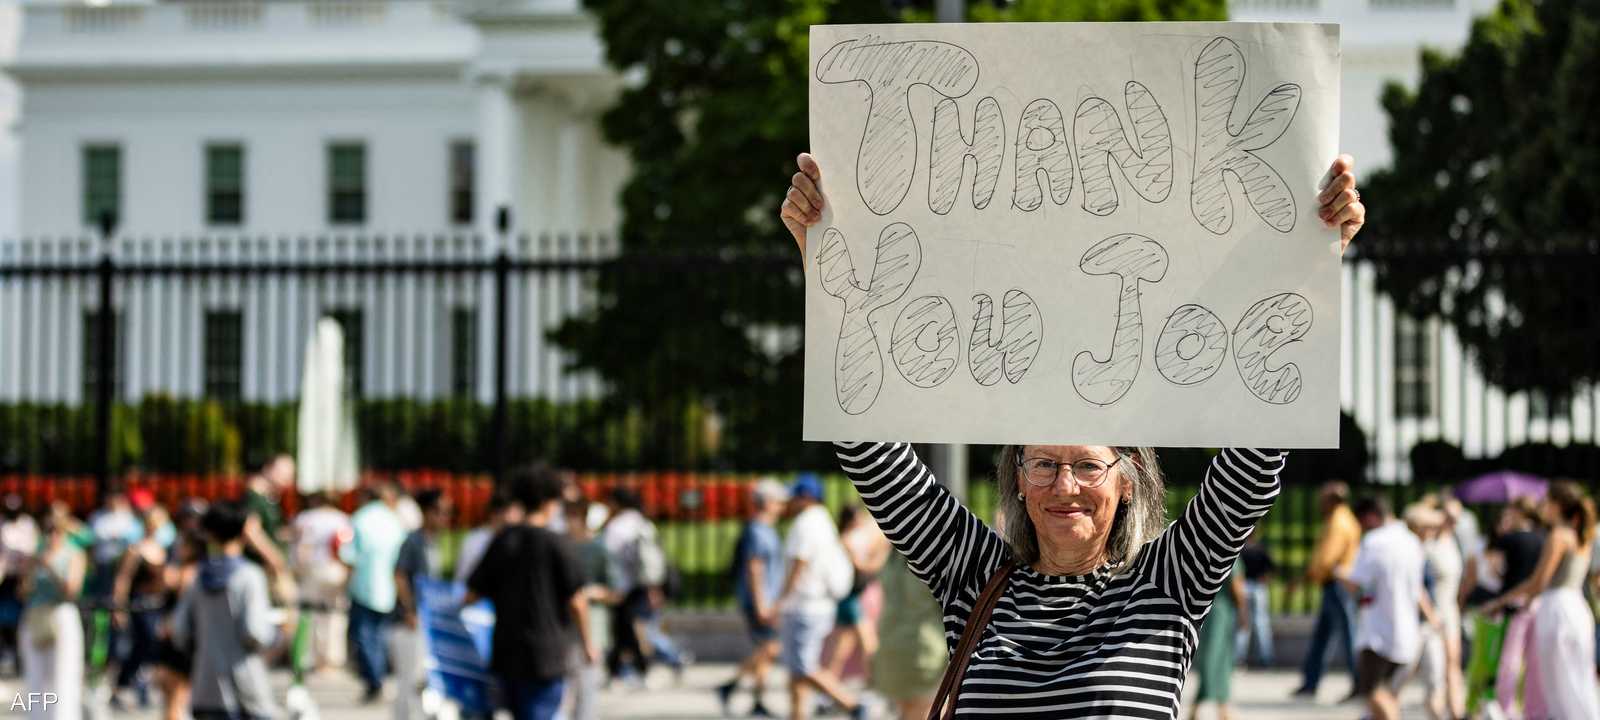 THANK
You Joe
AFP